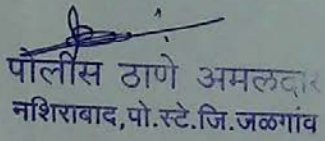 पोलीस ठाणे अमलदार
नशिराबाद,पो.स्टे.जि.जळगांव